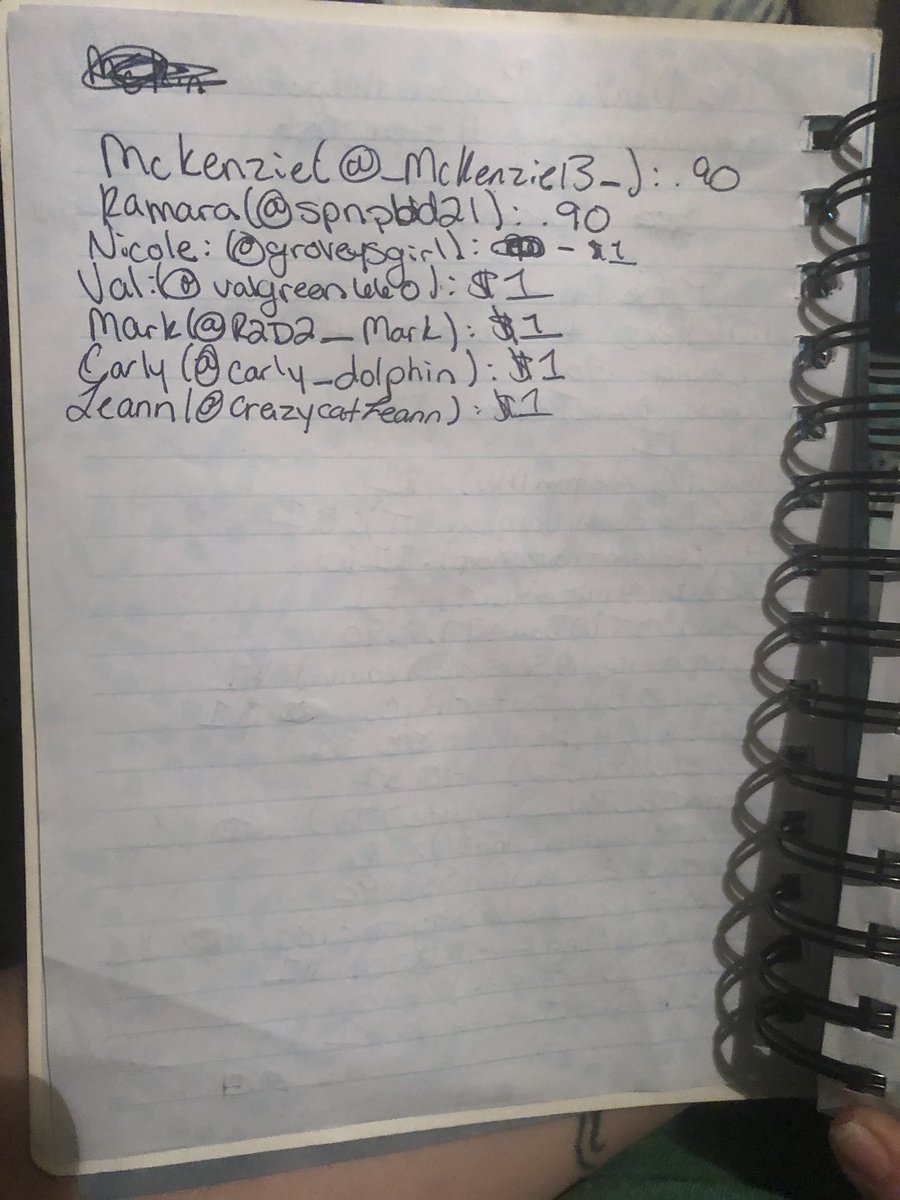 Mckenzie(@_McKenzie13_): .90
Ramara(@spnpbd21): .90
Nicole: (@groveysgirl): - $1
Val:(@valgreen1660): $1
Mark(@R2D2_Mark): $1
Carly (@carly_dolphin): $1
Leann(@crazycatleann): $1